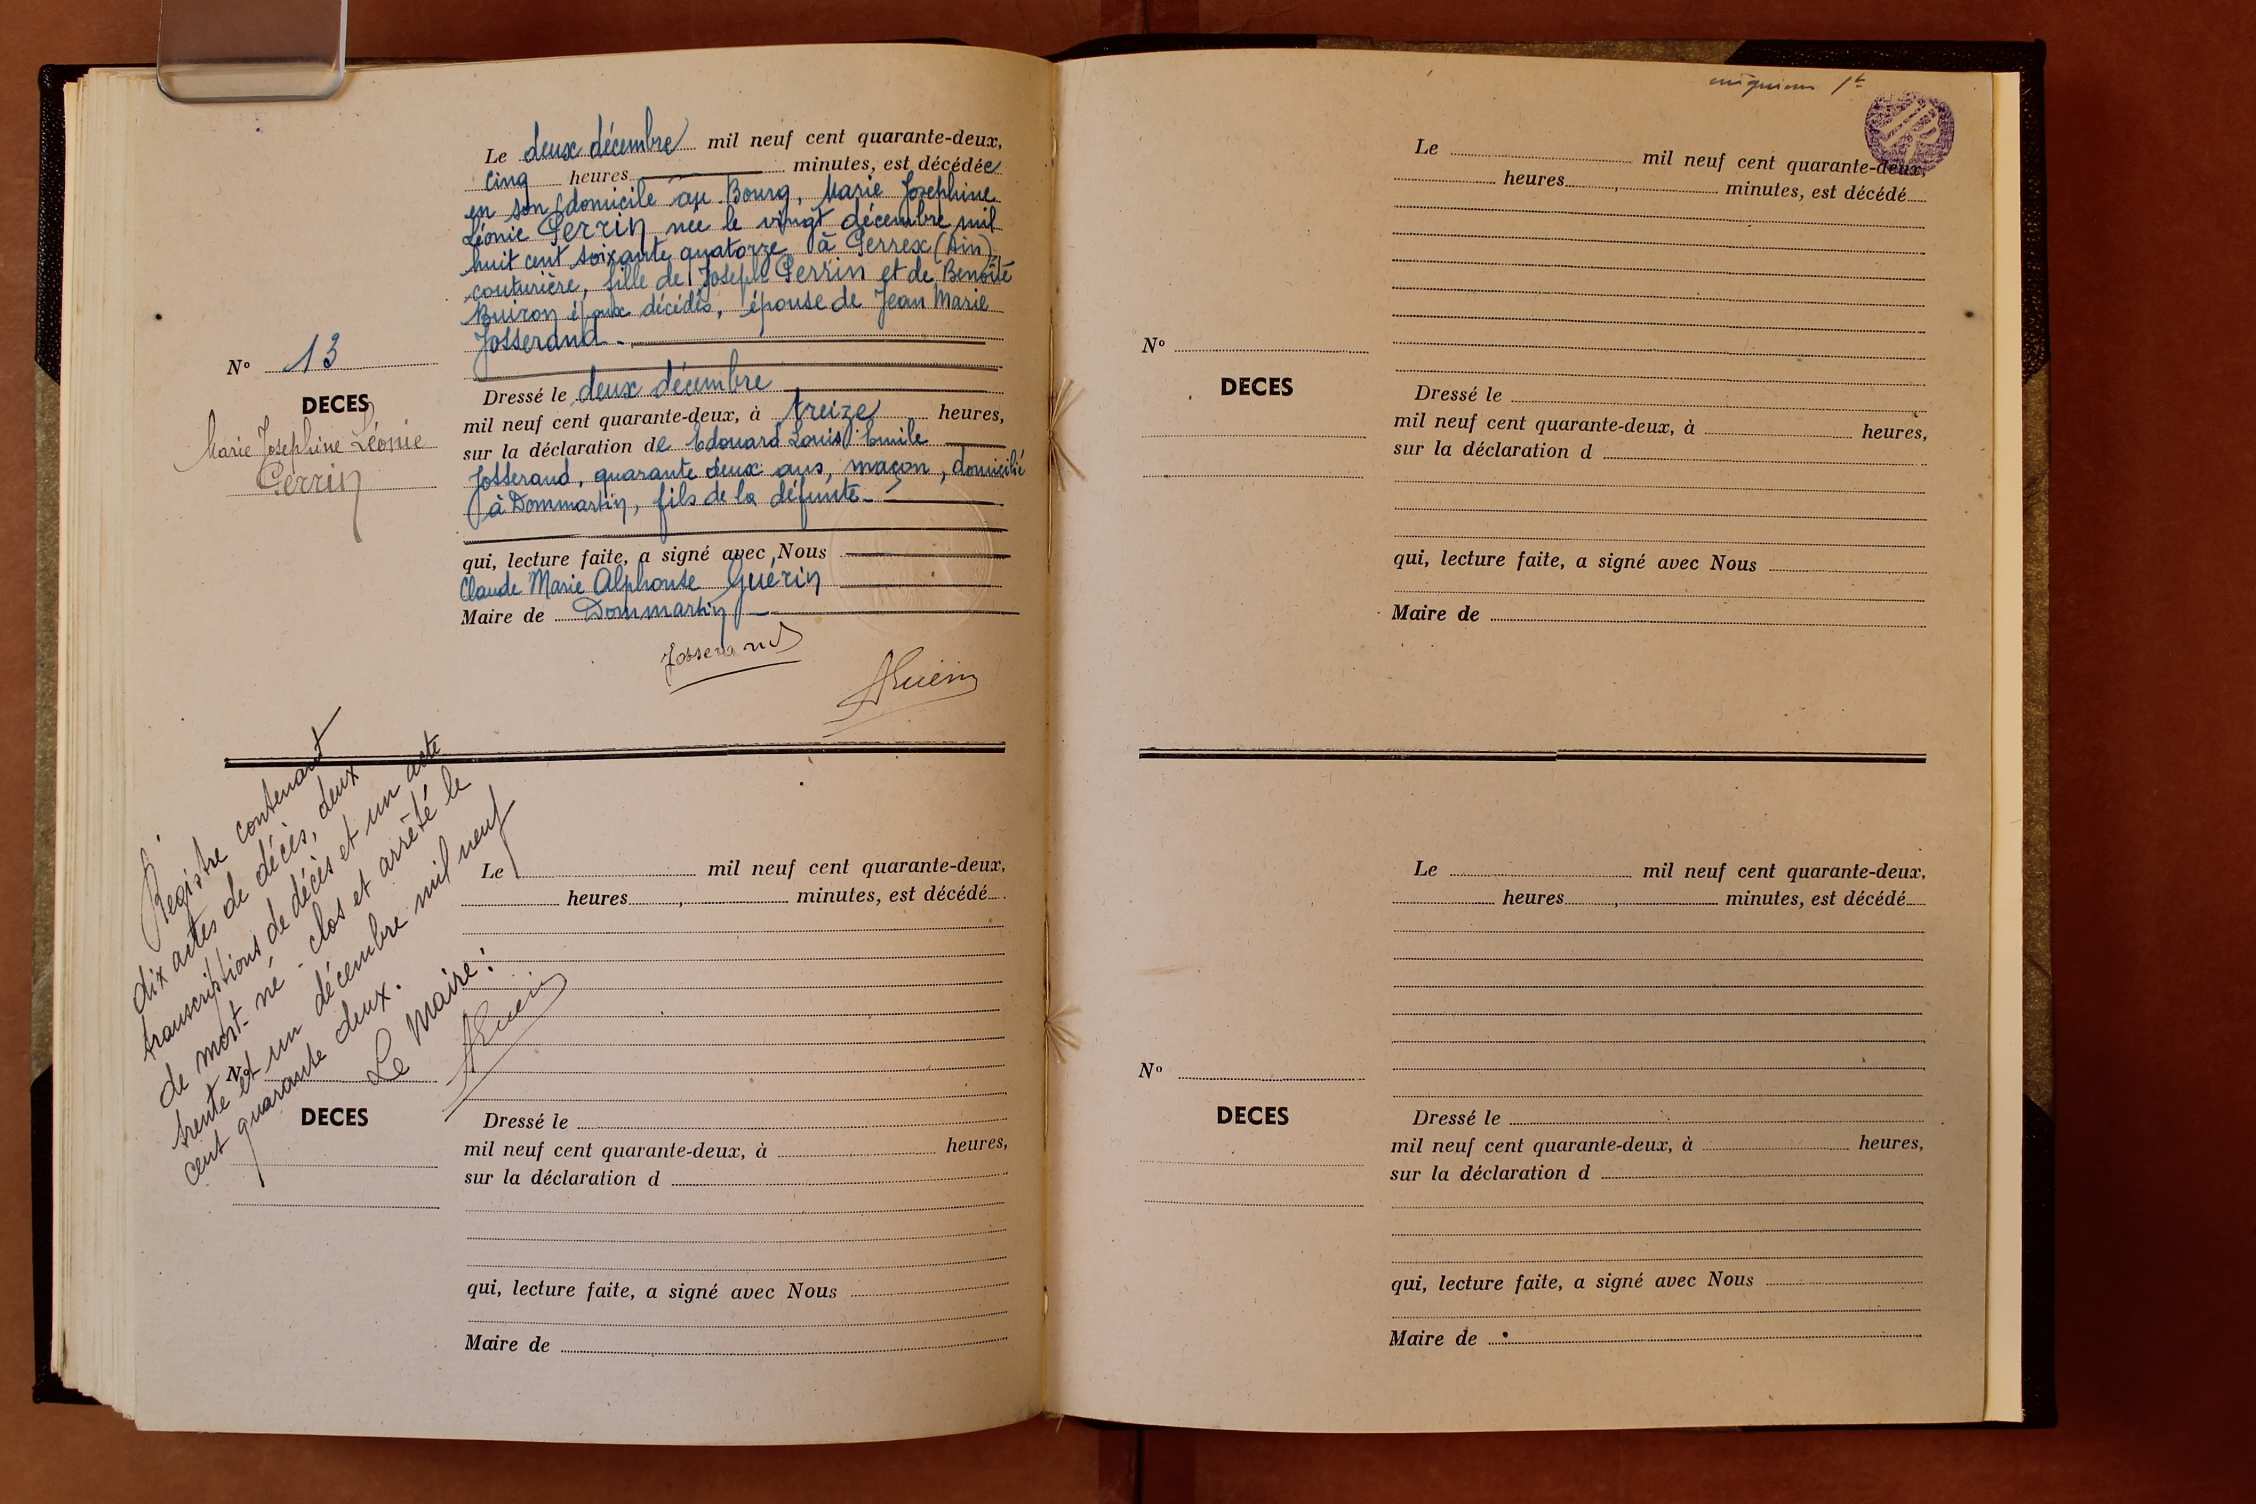 N° 13
DECES
Marie Josephine Léonie
Perrin
Le deux décembre mil neuf cent quarante-deux,
cinq heures minutes, est décédée
en son domicile au Bourg, Marie Josephine
Léonie Perrin née le vingt décembre mil
huit cent soixante quatorze à Perrex (Ain),
couturière, fille de Joseph Perrin et de Benoite
Buiron époux décédés, épouse de Jean Marie
Josserand.
Dressé le deux décembre
mil neuf cent quarante-deux, à treize heures,
sur la déclaration de Edouard Louis Emile
Josserand, quarante deux ans, maçon, domicilié
à Dommartin, fils de la défunte
qui, lecture faite, a signé avec Nous
Claude Marie Alphonse Guérin
Maire de Dommartin
Josserand
AGuérin
Registre contenant
dix actes de décès, deux
transcriptions de décès et un acte
de mort-né - clos et arrêté le
trente et un décembre mil neuf
cent quarante deux.
Le Maire:
AGuérin
Le mil neuf cent quarante-deux,
heures , minutes, est décédé
N°
DECES
Dressé le
mil neuf cent quarante-deux, à heures,
sur la déclaration d
qui, lecture faite, a signé avec Nous
Maire de
Le mil neuf cent quarante-deux,
heures , minutes, est décédé
N°
DECES
Dressé le
mil neuf cent quarante-deux, à heures,
sur la déclaration d
qui, lecture faite, a signé avec Nous
Maire de
Le mil neuf cent quarante-deux,
heures , minutes, est décédé
N°
DECES
Dressé le
mil neuf cent quarante-deux, à heures,
sur la déclaration d
qui, lecture faite, a signé avec Nous
Maire de